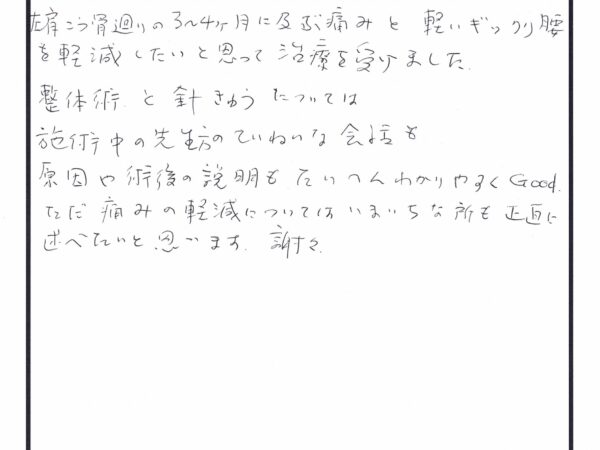 左肩こう骨廻りの3〜4ヶ月に及ぶ痛みと 軽いギックリ腰
を軽減したいと思って治療を受けました.
整体術 と 針きゅう については
施術中の先生方のていねいな会話も
原因や術後の説明も たいへんわかりやすくGood.
ただ痛みの軽減についてはいまいちな所も正直に
述べたいと思います.